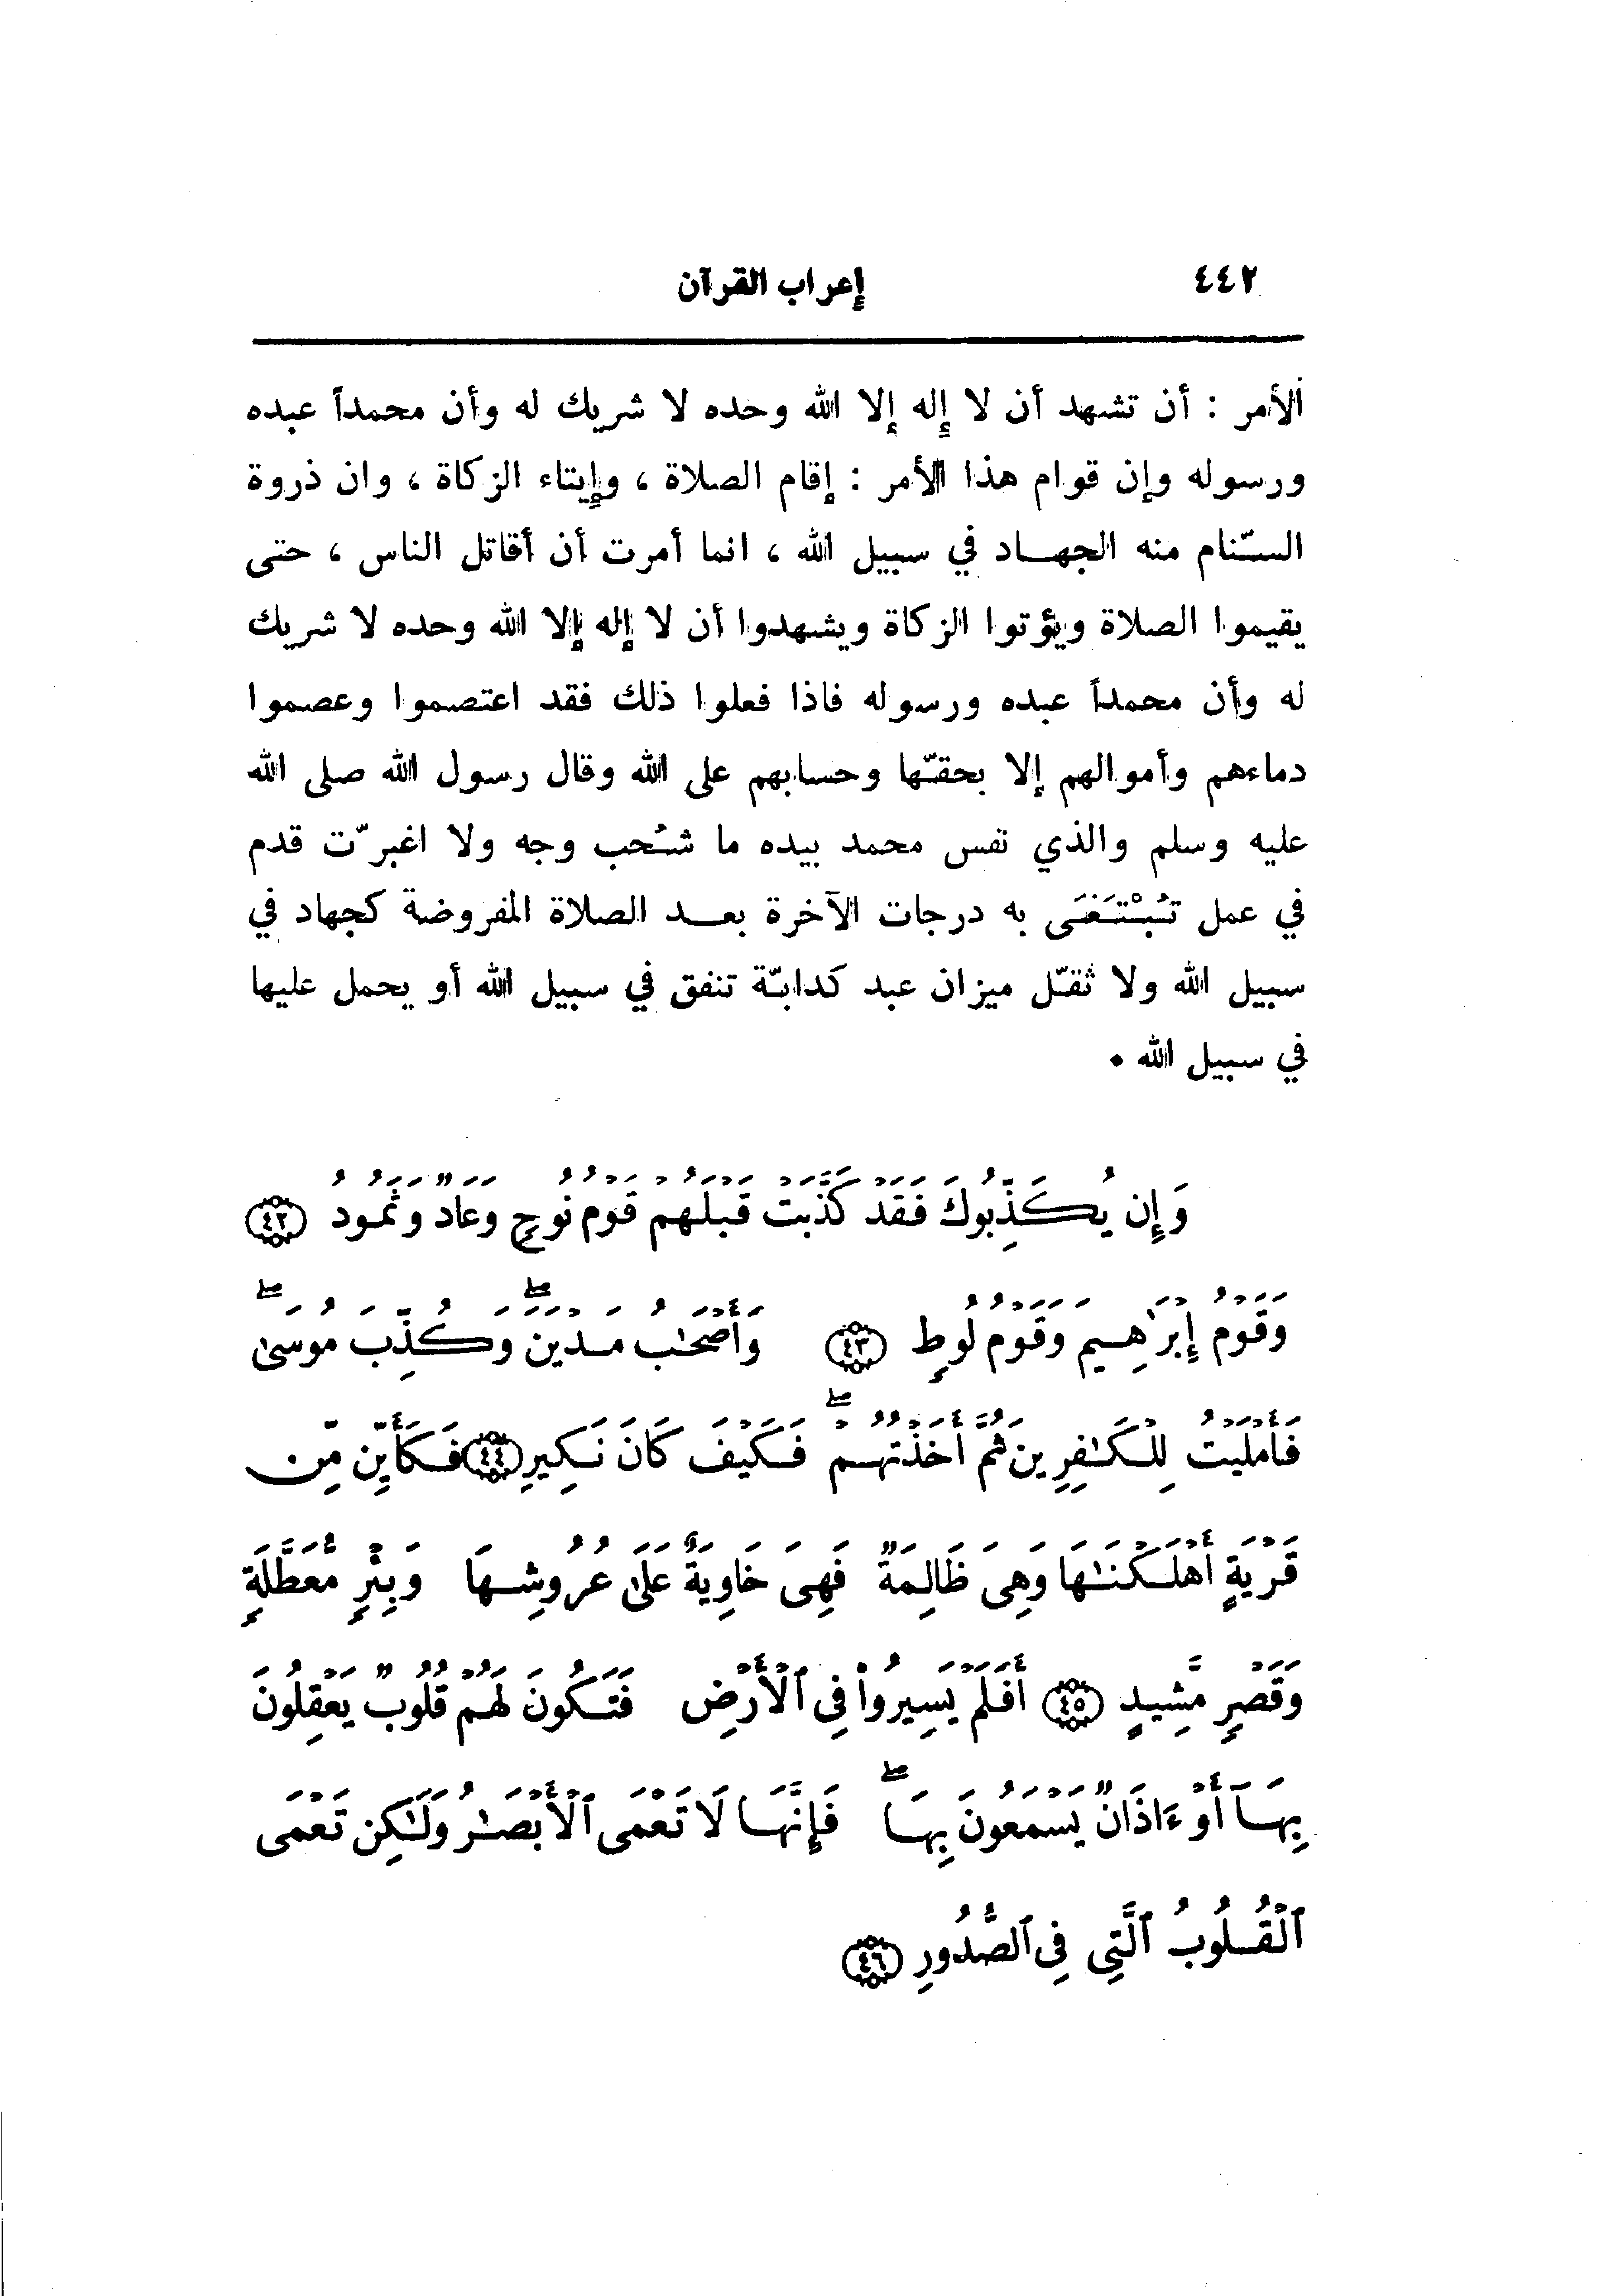 ٤٤٢ إعراب القرآن
الأمر : أن تشهد أن لا إله إلا الله وحده لا شريك له وأن محمداً عبده
ورسوله وإن قوام هذا الأمر : إقام الصلاة ، وإيتاء الزكاة ، وان ذروة
السّنام منه الجهاد في سبيل الله ، انما أمرت أن أقاتل الناس ، حتى
يقيموا الصلاة ويؤتوا الزكاة ويشهدوا أن لا إله إلا الله وحده لا شريك
له وأن محمداً عبده ورسوله فاذا فعلوا ذلك فقد اعتصموا وعصموا
دماءهم وأموالهم إلا بحقّها وحسابهم على الله وقال رسول الله صلى الله
عليه وسلم والذي نفس محمد بيده ما شُحب وجه ولا اغبرّت قدم
في عمل تُبْتَغَى به درجات الآخرة بعد الصلاة المفروضة كجهاد في
سبيل الله ولا ثقّل ميزان عبد كدابّة تنفق في سبيل الله أو يحمل عليها
في سبيل الله .
وَإِن يُكَذِّبُوكَ فَقَدْ كَذَّبَتْ قَبْلَهُمْ قَوْمُ نُوحٍ وَعَادٌ وَثَمُودُ ﴿٤٢﴾
وَقَوْمُ إِبْرَٰهِيمَ وَقَوْمُ لُوطٍ ﴿٤٣﴾ وَأَصْحَٰبُ مَدْيَنَ ۖ وَكُذِّبَ مُوسَىٰ ۖ
فَأَمْلَيْتُ لِلْكَٰفِرِينَ ثُمَّ أَخَذْتُهُمْ ۖ فَكَيْفَ كَانَ نَكِيرِ ﴿٤٤﴾ فَكَأَيِّن مِّن
قَرْيَةٍ أَهْلَكْنَٰهَا وَهِىَ ظَالِمَةٌ فَهِىَ خَاوِيَةٌ عَلَىٰ عُرُوشِهَا وَبِئْرٍ مُّعَطَّلَةٍ
وَقَصْرٍ مَّشِيدٍ ﴿٤٥﴾ أَفَلَمْ يَسِيرُوا۟ فِى ٱلْأَرْضِ فَتَكُونَ لَهُمْ قُلُوبٌ يَعْقِلُونَ
بِهَآ أَوْ ءَاذَانٌ يَسْمَعُونَ بِهَا ۖ فَإِنَّهَا لَا تَعْمَى ٱلْأَبْصَٰرُ وَلَٰكِن تَعْمَى
ٱلْقُلُوبُ ٱلَّتِى فِى ٱلصُّدُورِ ﴿٤٦﴾